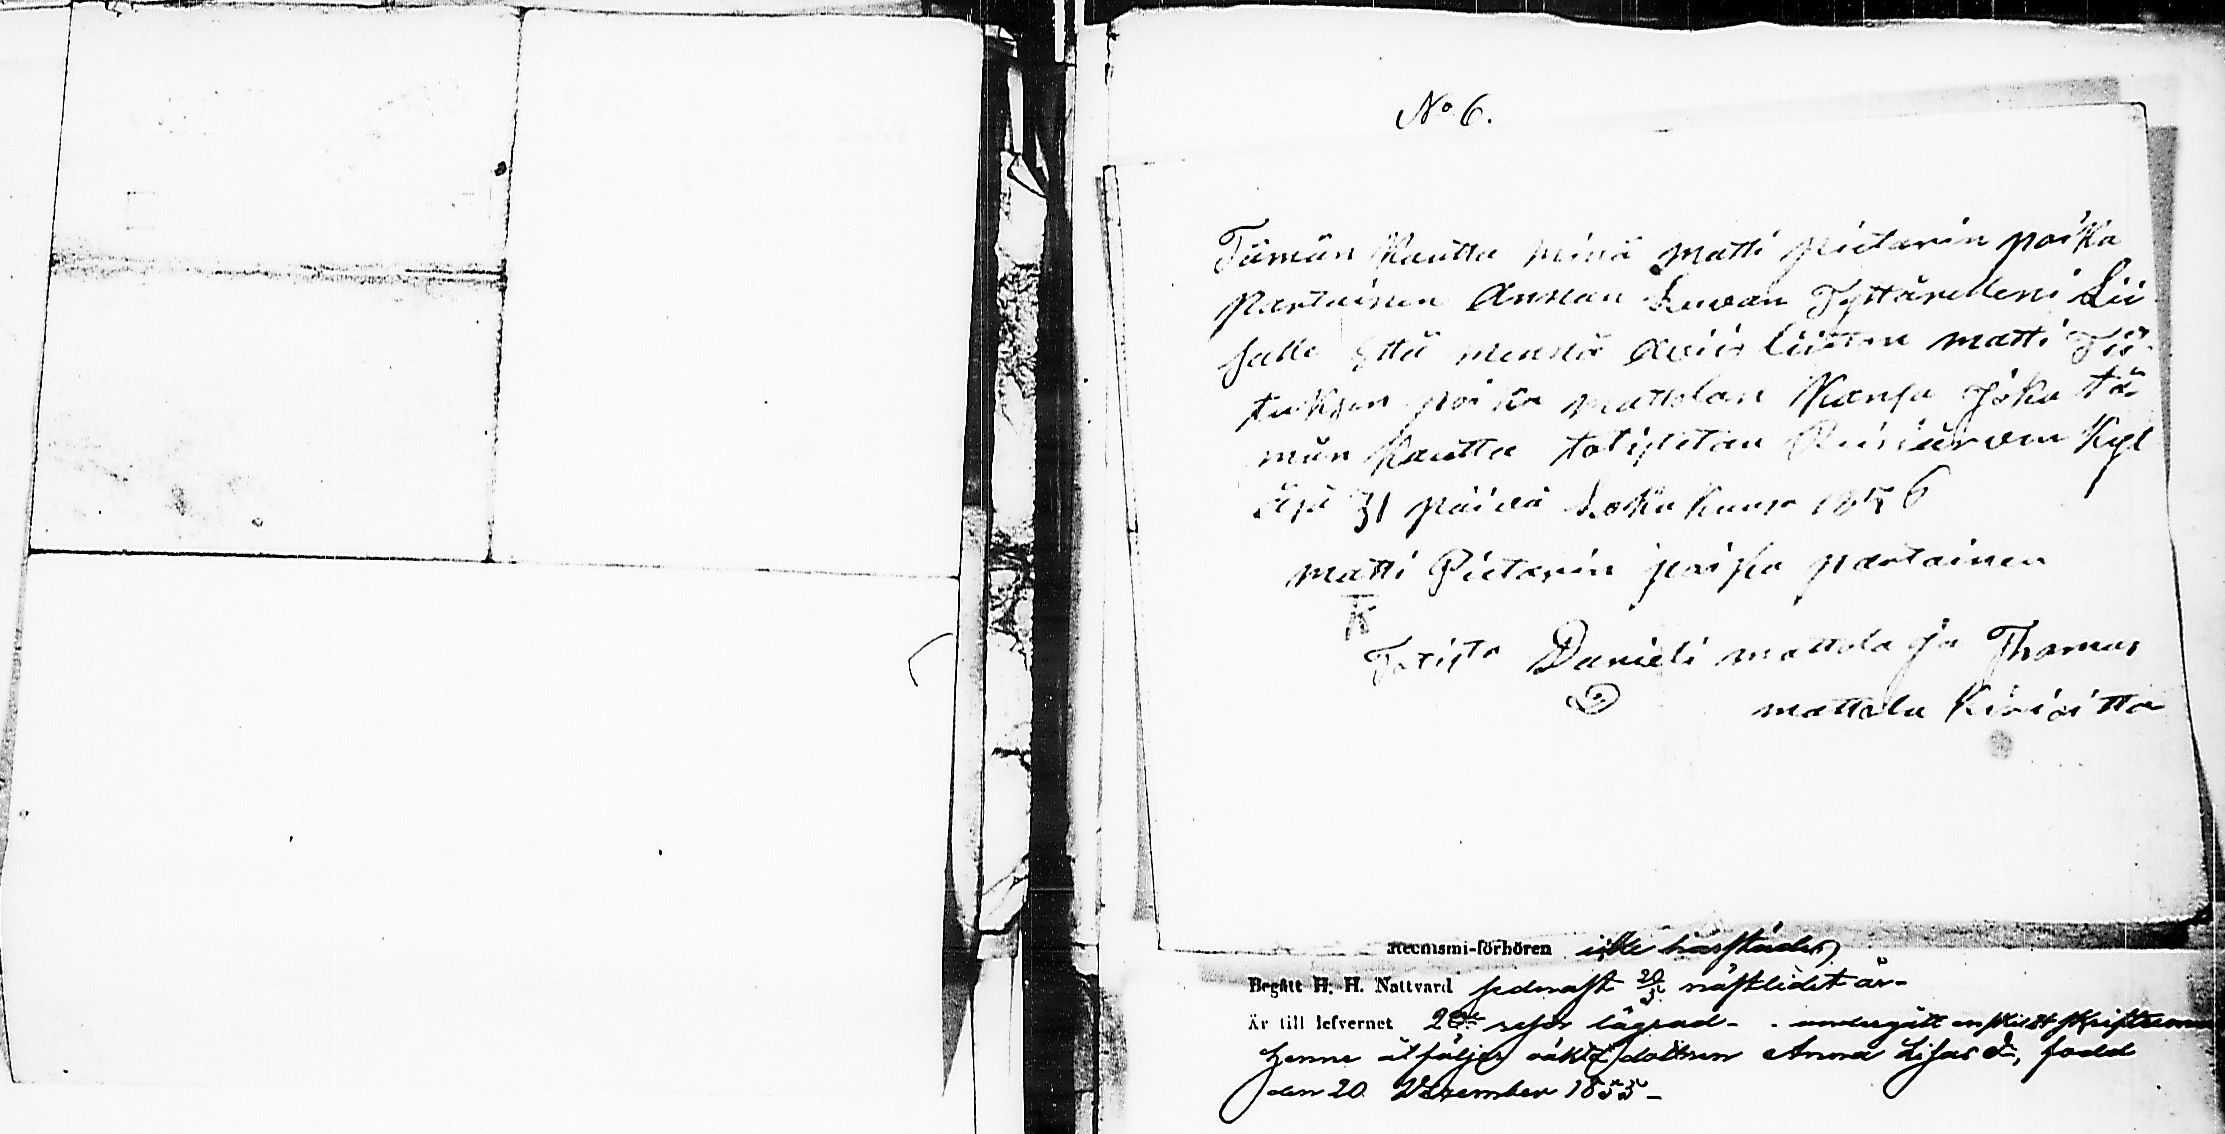 No 6.
Tämän Kautta minä Matti pietarin poika
partainen Annan Luwan Tyttärelleni Lii
salle Että mennä Awis liitton matti Tii
tuksen poika mattolan Kansa Joka tä
män Kautta totistetan Kyl
äsä 31 päivä Loka Kuusa 1856
matti Pietarin poika partainen
Totista Danieli mattola Ja Thomas
mattola Kirioitta
techismi-förhören icke härstädes
Begått H. H. Nattvard sednast 20/5 nästlidet år-
Är till lefvernet 2 resor lägrad - undergått enskildt skriftermål
Henne åtföljer oäkta dottren Anna Lisas dr, född
den 20 December 1855-